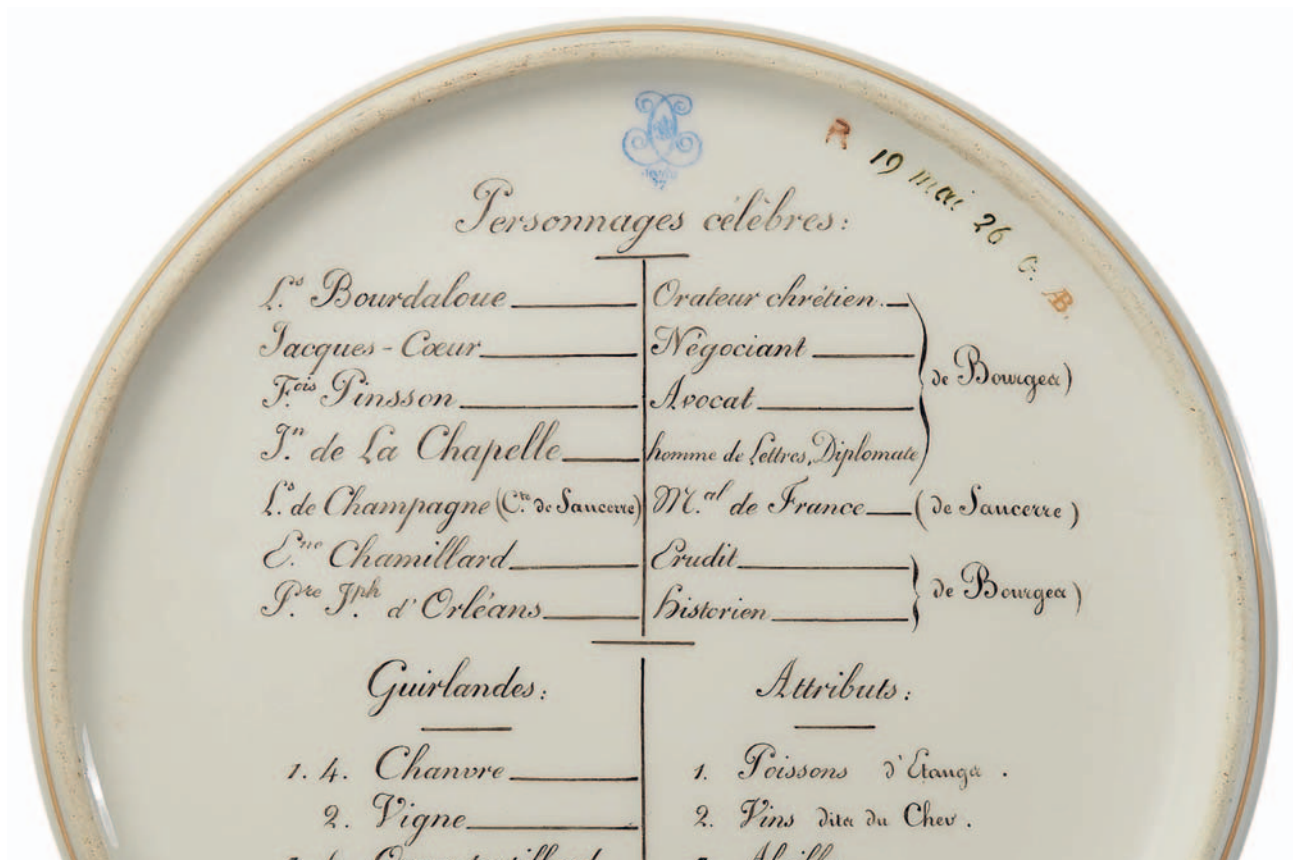 R 19 mai 26 G. AB.
Personnages célèbres:
L.s Bourdaloue Orateur chrétien.
Jacques-Cœur Négociant
de Bourges)
F.ois Pinsson Avocat
J.n de La Chapelle homme de Lettres, Diplomate
L.s de Champagne (C.te de Sancerre) M.al de France (de Sancerre)
E.ne Chamillard Erudit
de Bourges)
P.re J.ph d'Orléans historien
Guirlandes: Attributs:
1. 4. Chanvre 1. Poissons d'Etangs.
2. Vigne 2. Vins dits du Cher.